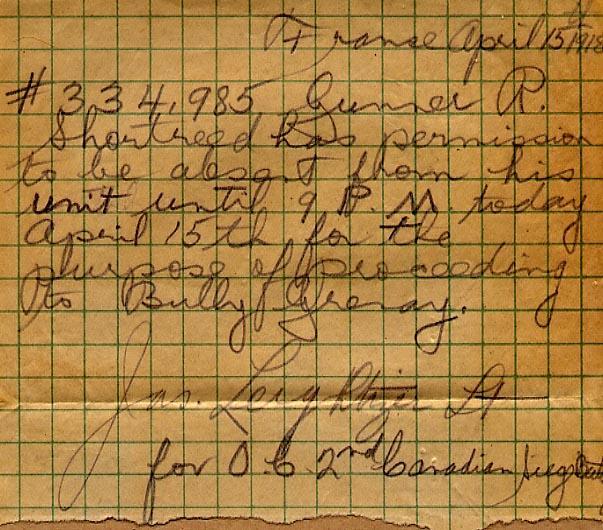 France April 15th 1918
# 334,985 Gunner R.
Shortreed has permission
to be absent from his
unit until 9 P.M. today
April 15th for the
purpose of proceeding
to Bully Grenay.
Jas. Lt
for O.C. 2nd Canadian Siege Bat